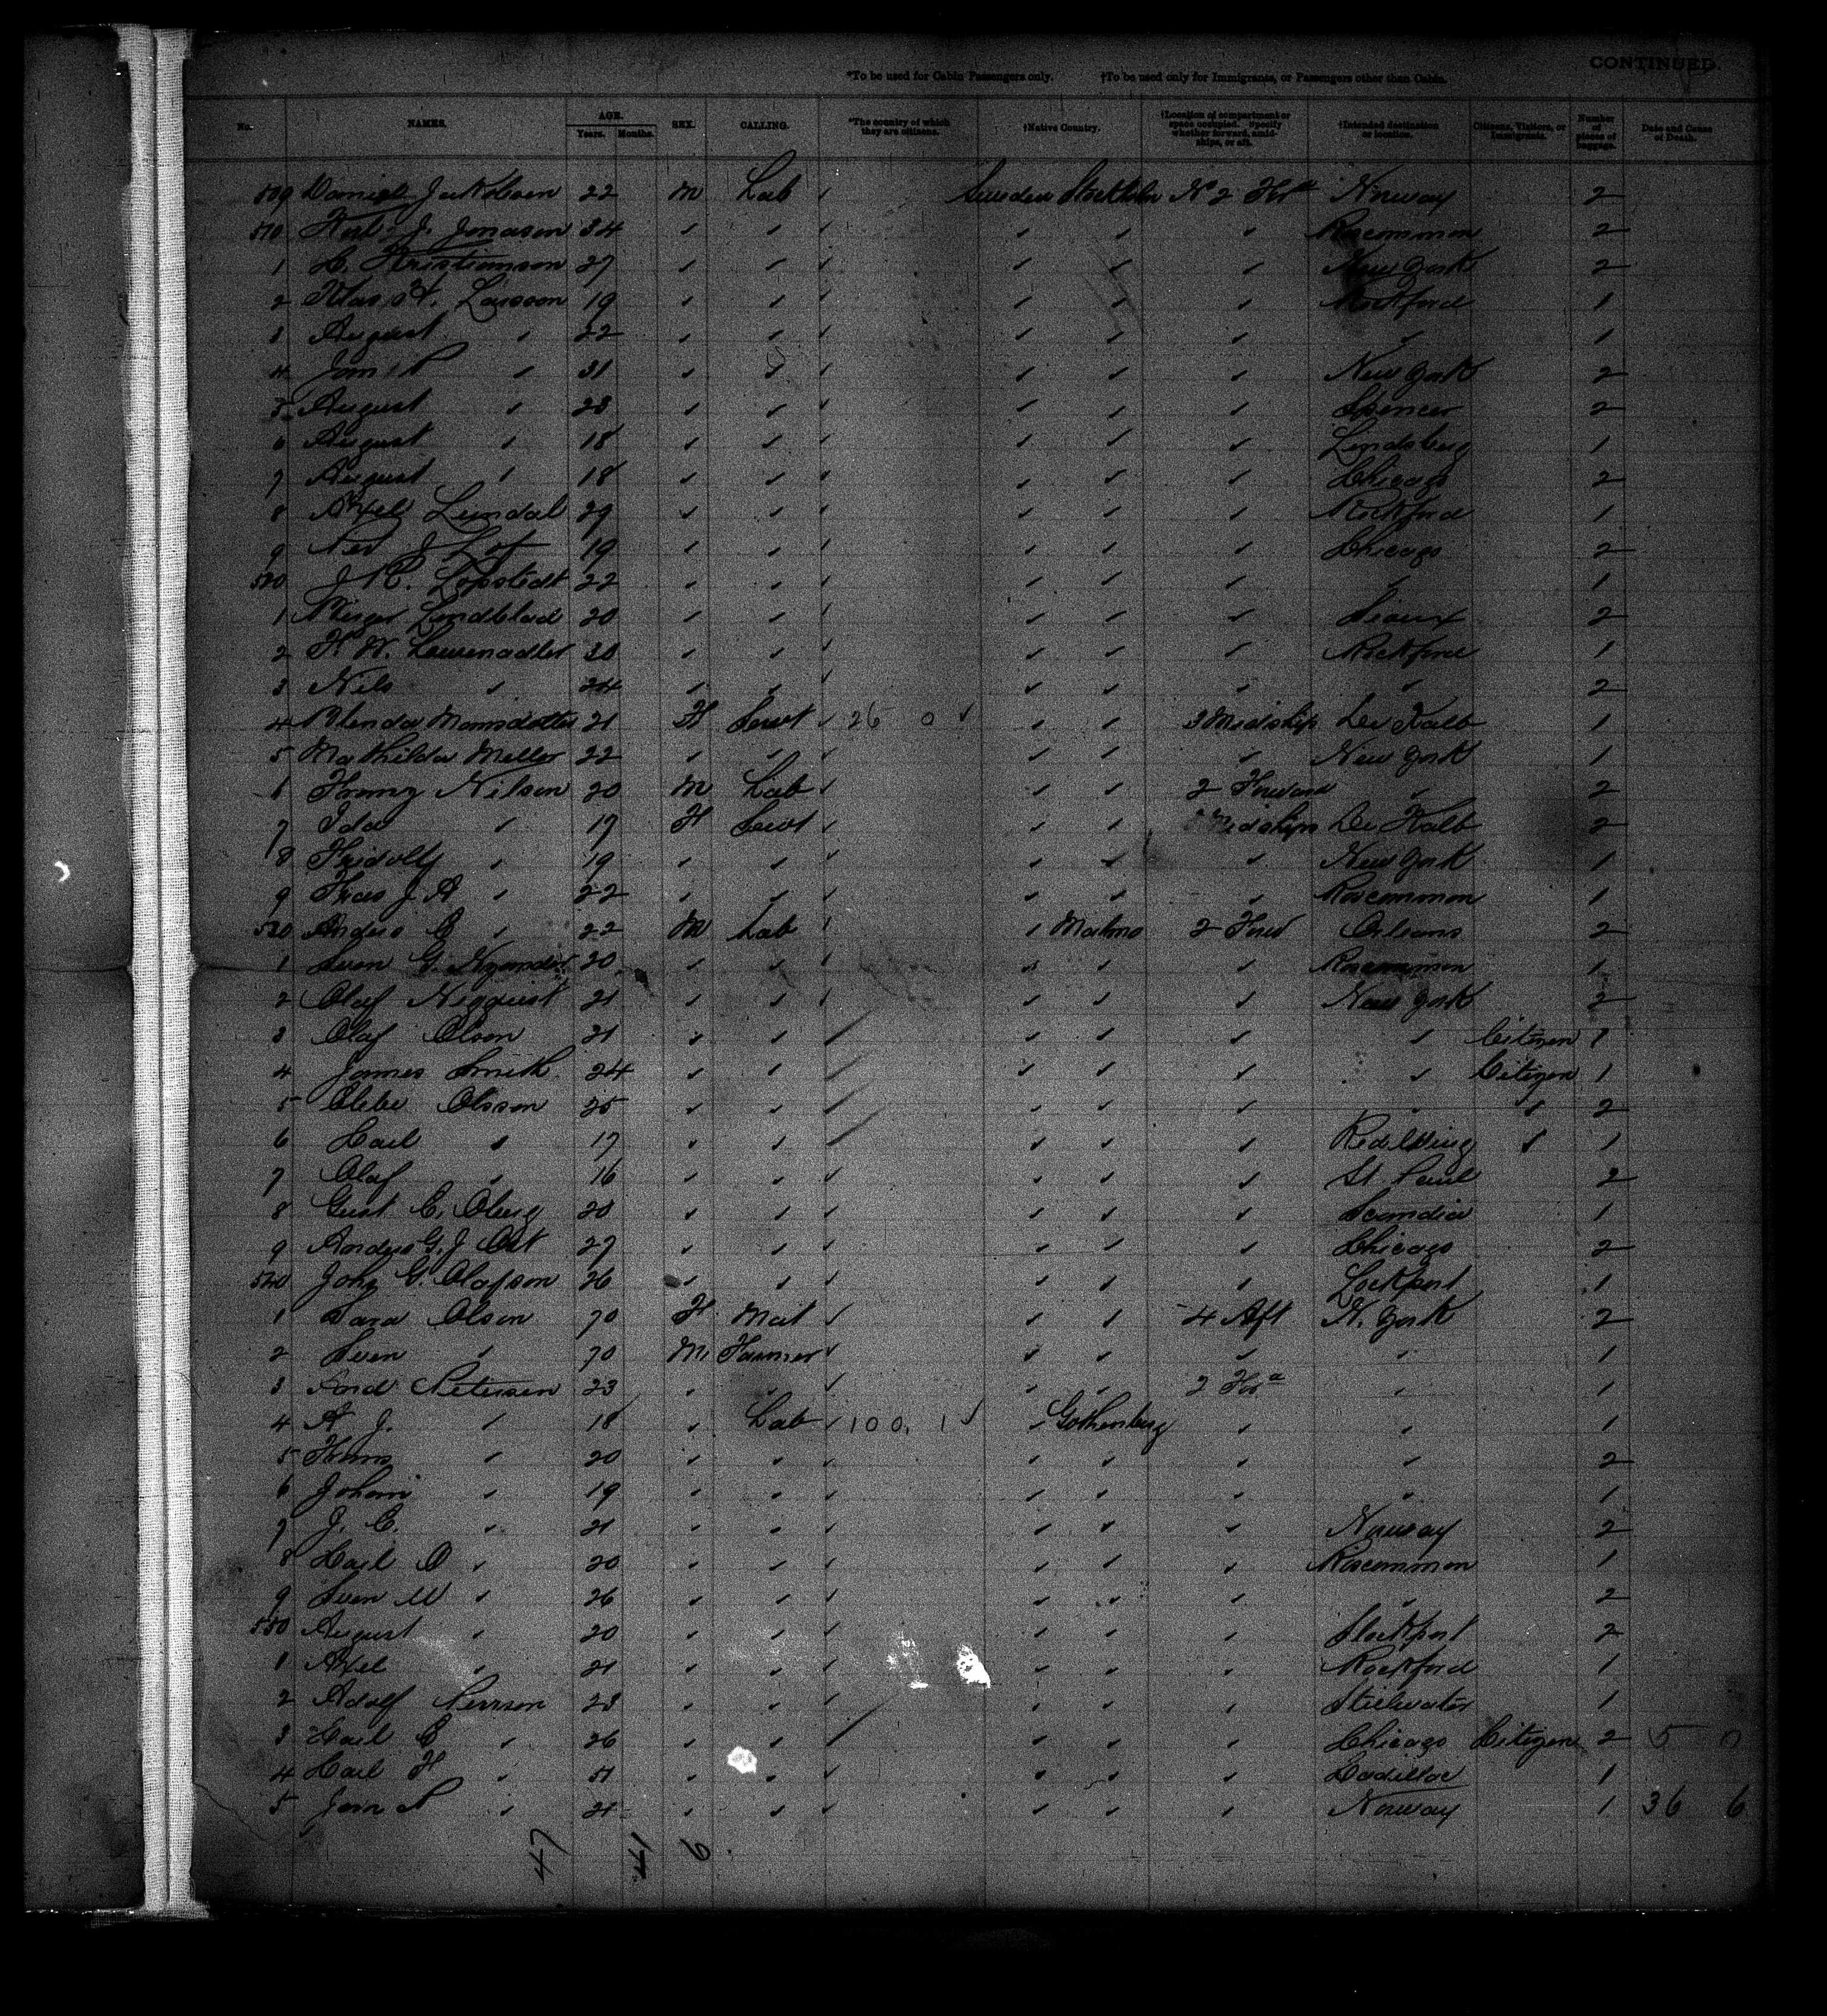 CONTINUED.
*To be used for Cabin Passengers only. †To be used only for Immigrants, or Passengers other than Cabin.
No. NAMES. AGE. Years. Months. SEX. CALLING. *The country of which they are citizens. †Native Country. †Location of compartment or space occupied. Specify whether forward, amidships, or aft. †Intended destination or location. Citizens, Visitors, or Immigrants. Number of pieces of baggage. Date and Cause of Death.
509 Daniel Jakobsen 22 M Lab ✓ Sweden Stockholm No 2 For Norway 2
510 J. Jonason 34 ✓ ✓ ✓ ✓ ✓ ✓ Roscommon 2
1 Kristianson 27 ✓ ✓ ✓ ✓ ✓ ✓ New York 2
2 Klas A. Larsson 19 ✓ ✓ ✓ ✓ ✓ ✓ Rockford 1
3 August ✓ 22 ✓ ✓ ✓ ✓ ✓ ✓ ✓ 1
4 ✓ 31 ✓ ✓ ✓ ✓ ✓ ✓ New York 2
5 August ✓ 23 ✓ ✓ ✓ ✓ ✓ ✓ Spencer 2
6 August ✓ 18 ✓ ✓ ✓ ✓ ✓ ✓ Lindsberg 1
7 August ✓ 18 ✓ ✓ ✓ ✓ ✓ ✓ Chicago 2
8 Axel Lundal 29 ✓ ✓ ✓ ✓ ✓ ✓ Rockford 1
9 J Lof 19 ✓ ✓ ✓ ✓ ✓ ✓ Chicago 2
520 22 ✓ ✓ ✓ ✓ ✓ ✓ ✓ 1
1 Lindblad 20 ✓ ✓ ✓ ✓ ✓ ✓ Sioux 2
2 Lewenadler 30 ✓ ✓ ✓ ✓ ✓ ✓ Rockford 1
3 Nils ✓ 24 ✓ ✓ ✓ ✓ ✓ ✓ ✓ 2
4 Blenda Monsdotter 21 F Servt ✓ 26 0 ✓ ✓ ✓ 3 Midship De Kalb 1
5 Mathilda Meller 22 ✓ ✓ ✓ ✓ ✓ ✓ New York 1
6 Nilson 20 M Lab ✓ ✓ ✓ 2 Forward ✓ 2
7 Ida ✓ 17 F Servt ✓ ✓ ✓ Midships De Kalb 2
8 ✓ 19 ✓ ✓ ✓ ✓ ✓ New York 1
9 J A ✓ 22 ✓ ✓ ✓ ✓ ✓ Roscommon 1
530 Anders ✓ 22 M Lab ✓ Malmo 2 Forw Orleans 2
1 Sven G. 20 ✓ ✓ ✓ ✓ ✓ ✓ Roscommon 1
2 Olaf Nigquist 21 ✓ ✓ ✓ ✓ ✓ ✓ New York 2
3 Olaf Olson 21 ✓ ✓ ✓ ✓ ✓ ✓ Citizen 1
4 James Smith 24 ✓ ✓ ✓ ✓ ✓ ✓ Citizen 1
5 Olsson 25 ✓ ✓ ✓ ✓ ✓ ✓ ✓ 2
6 Carl ✓ 17 ✓ ✓ ✓ ✓ ✓ Red Wing ✓ 1
7 Olaf ✓ 16 ✓ ✓ ✓ ✓ ✓ ✓ St Paul 2
8 Gust C. Oberg 20 ✓ ✓ ✓ ✓ ✓ ✓ Scandia 1
9 Anders G. J. Ost 27 ✓ ✓ ✓ ✓ ✓ ✓ Chicago 2
540 John G. Olafson 26 ✓ ✓ ✓ ✓ ✓ Lockport 1
1 Sara Olson 70 F Mat ✓ ✓ ✓ 4 Aft N. York 2
2 Sven ✓ 70 M Farmer ✓ ✓ ✓ ✓ ✓ 1
3 Petersen 23 ✓ ✓ ✓ ✓ 2 For ✓ 1
4 A J. ✓ 18 ✓ Lab ✓ 100. 1 ✓ ✓ Gothenberg ✓ ✓ 1
5 Hans ✓ 20 ✓ ✓ ✓ ✓ ✓ ✓ ✓ 2
6 Johan ✓ 19 ✓ ✓ ✓ ✓ ✓ ✓ ✓ 1
7 J. C. ✓ 21 ✓ ✓ ✓ ✓ ✓ ✓ Norway 2
8 Carl O ✓ 20 ✓ ✓ ✓ ✓ ✓ ✓ Roscommon 1
9 Sven M ✓ 26 ✓ ✓ ✓ ✓ ✓ ✓ ✓ 2
550 August ✓ 20 ✓ ✓ ✓ ✓ ✓ ✓ Stockport 2
1 Axel ✓ 21 ✓ ✓ ✓ ✓ ✓ ✓ Rockford 1
2 Adolf Persson 23 ✓ ✓ ✓ ✓ ✓ ✓ Stillwater 1
3 Carl ✓ 26 ✓ ✓ ✓ ✓ ✓ Chicago Citizen 2 5 0
4 Carl F ✓ 51 ✓ ✓ ✓ ✓ ✓ ✓ Cadillac 1
5 ✓ 21 ✓ ✓ ✓ ✓ ✓ ✓ Norway 1 36 6
47 41 6